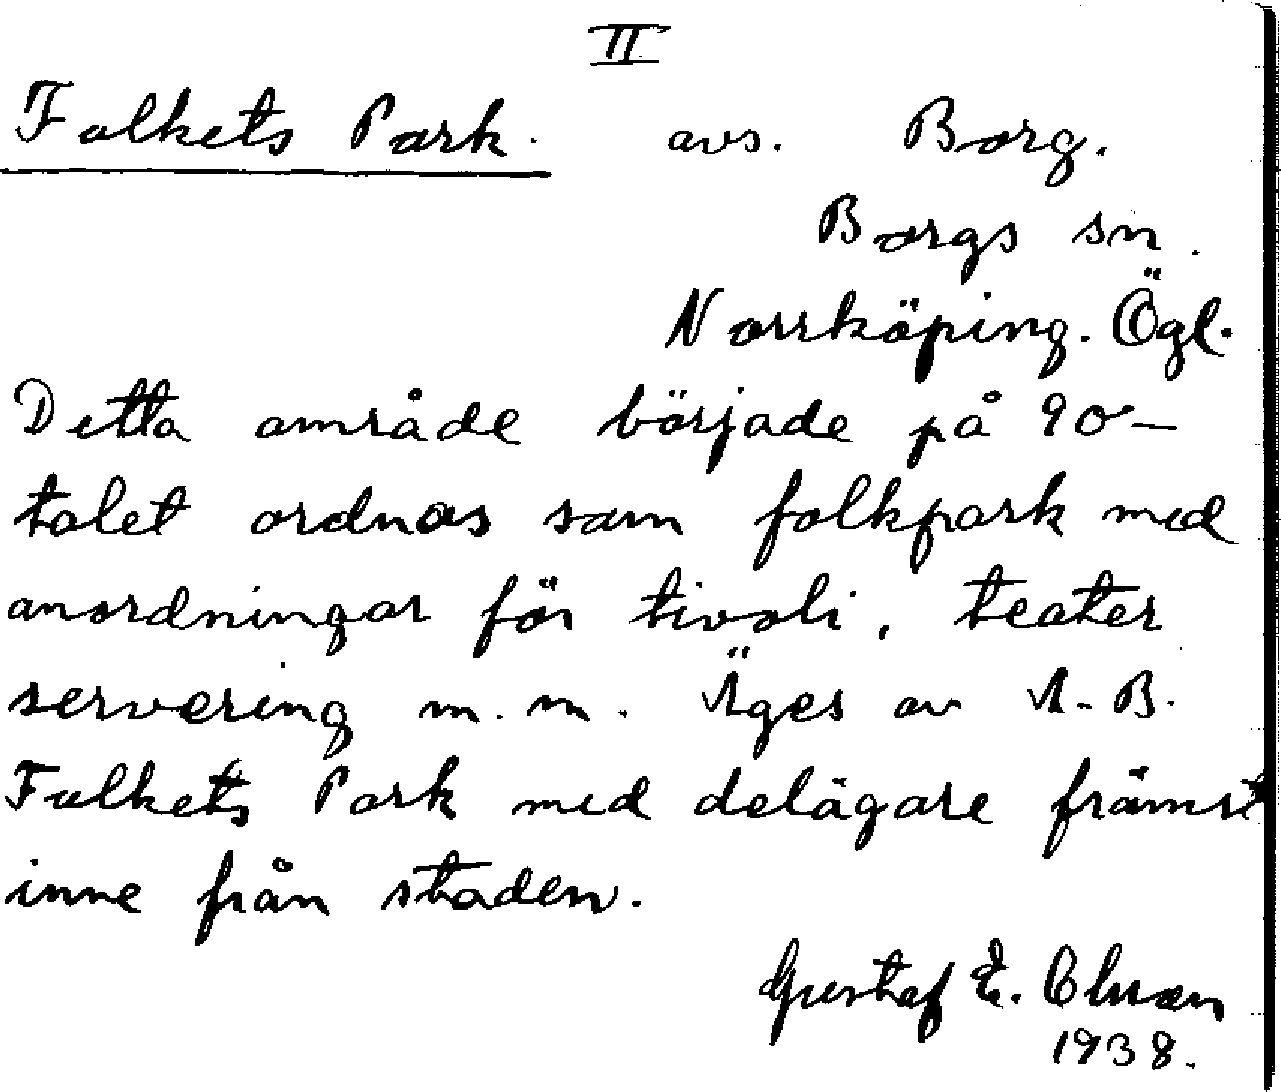 II
Folkets Park. avs. Borg.
Borgs sn.
Norrköping. Ögl.
Detta område började på 90-
talet ordnas som folkpark med
anordningar för tivoli, teater
servering m.m. Äges av A.B.
Folkets Park med delägare främst
inne från staden.
Gustaf E. Olsson
1938.